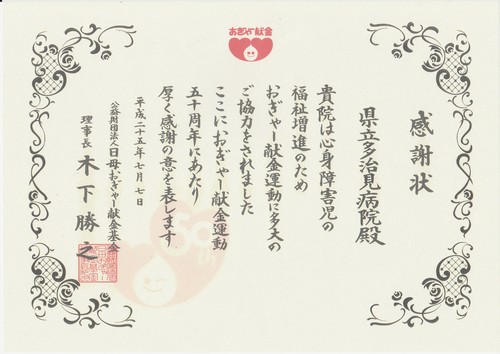 おぎゃー献金
感謝状
県立多治見病院殿
貴院は心身障害児の
福祉増進のため
おぎゃー献金運動に多大の
ご協力をされました
ここにおぎゃー献金運動
五十周年にあたり
厚く感謝の意を表します
平成二十五年七月七日
公益財団法人日母おぎゃー献金基金
理事長 木下勝之
50th